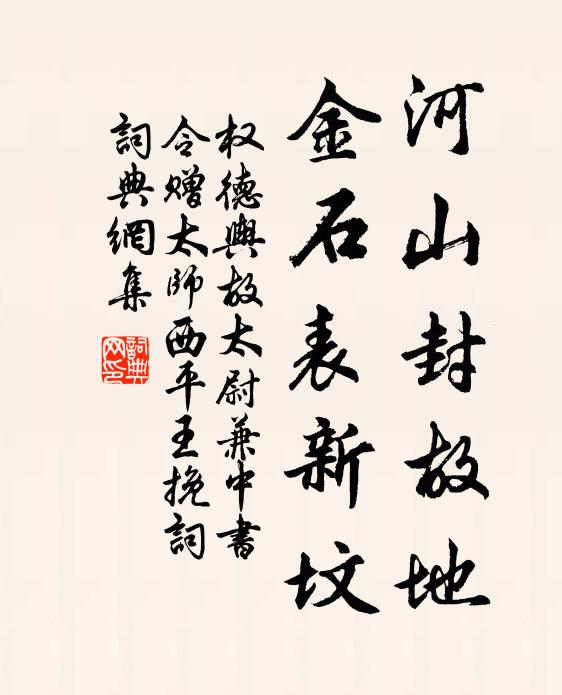 河山封故地
金石表新坟
权德舆故太尉兼中書
令赠太师西平王挽詞
詞典網集
詞典
网印